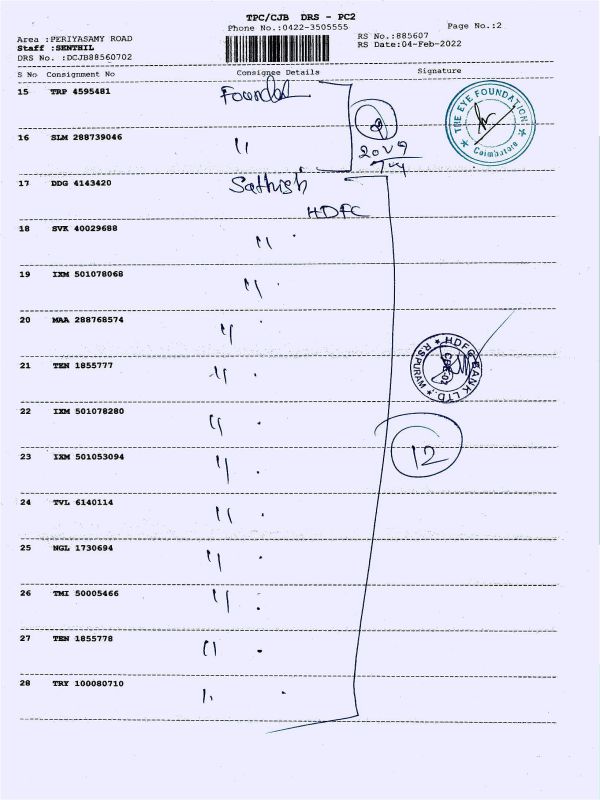 TPC/CJB DRS - PC2
Phone No.:0422-3505555
Page No.:2
Area :PERIYASAMY ROAD
Staff :SENTHIL
DRS No. :DCJB88560702
RS No.:885607
RS Date:04-Feb-2022
S No Consignment No Consignee Details Signature
15 TRP 4595481
THE EYE FOUNDATION
Coimbatore
16 SLM 288739046 "
17 DDG 4143420 Sathish
HDFC
18 SVK 40029688 "
19 IXM 501078068 "
20 MAA 288768574 "
21 TEN 1855777 "
HDFC BANK LTD.
R.S.PURAM
22 IXM 501078280 "
23 IXM 501053094 "
12
24 TVL 6140114 "
25 NGL 1730694 "
26 TMI 50005466 "
27 TEN 1855778 "
28 TRY 100080710 "